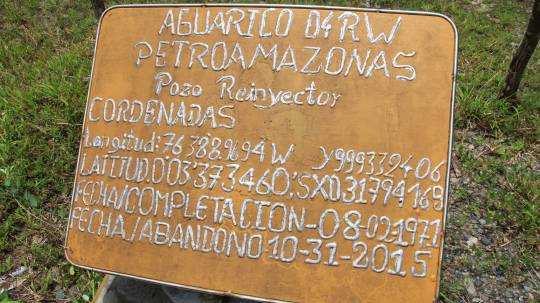 AGUARICO 04RW
PETROAMAZONAS
Pozo Reinyector
CORDENADAS
Longitud: 76.388.9694 W y9993324.06
LATITUD.0°03'373.460,'SX0317941.69
FECHA/COMPLETACION-08-02-1971
FECHA/ABANDONO 10-31-2015